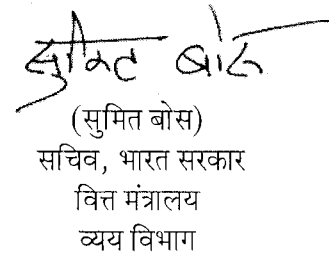 सुमित बोस
(सुमित बोस)
सचिव, भारत सरकार
वित्त मंत्रालय
व्यय विभाग